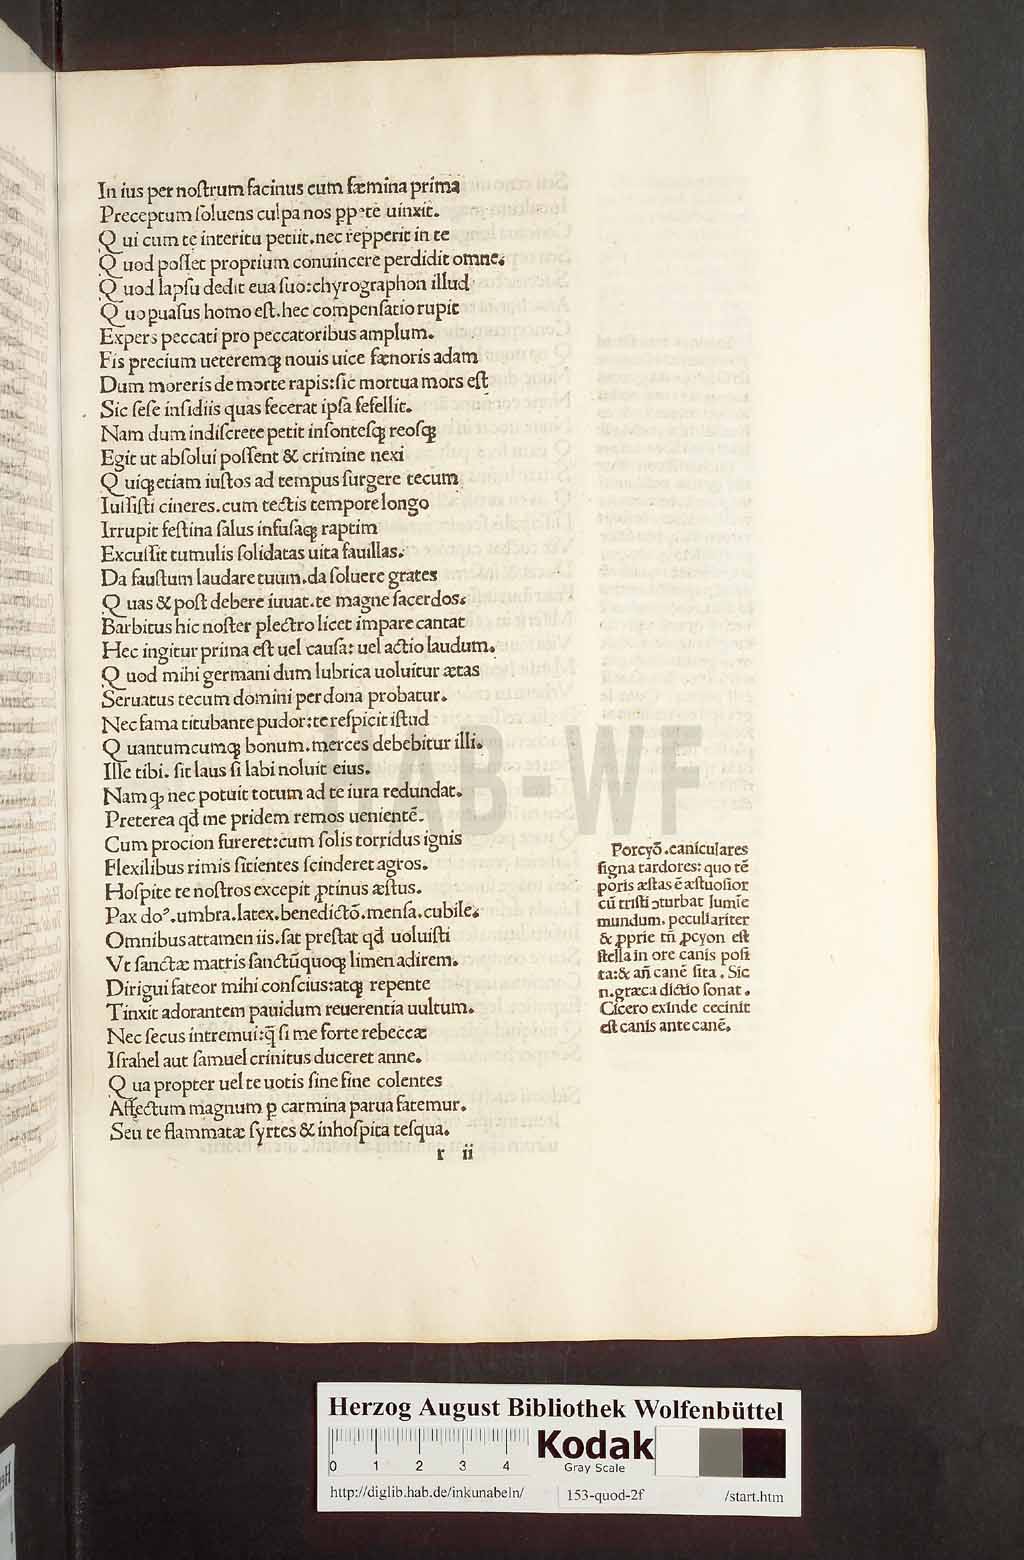 In ius per noſtrum facinus cum fæmina prima
Preceptum ſoluens culpa nos ꝓpꝛte uinxit.
Q ui cum te interitu petiit.nec repperit in te
Q uod poſſet proprium conuincere perdidit omne.
Q uod lapſu dedit eua ſuo:chyrographon illud
Q uo puaſus homo eſt.hec compenſatio rupit
Expers peccati pro peccatoribus amplum.
Fis precium ueteremqꝫ nouis uice fænoris adam
Dum moreris de morte rapis:ſic mortua mors eſt
Sic ſeſe inſidiis quas fecerat ipſa fefellit.
Nam dum indiſcrete petit inſonteſqꝫ reoſqꝫ
Egit ut abſolui poſſent & crimine nexi
Q uiqꝫ etiam iuſtos ad tempus ſurgere tecum
Iuſſiſti cineres.cum tectis tempore longo
Irrupit feſtina ſalus infuſaqꝫ raptim
Excuſſit tumulis ſolidatas uita fauillas.
Da fauſtum laudare tuum.da ſoluere grates
Q uas & poſt debere iuuat.te magne ſacerdos.
Barbitus hic noſter plectro licet impare cantat
Hec ingitur prima eſt uel cauſa: uel actio laudum.
Q uod mihi germani dum lubrica uoluitur ætas
Seruatus tecum domini per dona probatur.
Nec fama titubante pudor:te reſpicit iſtud
Q uantumcumqꝫ bonum.merces debebitur illi.
Ille tibi. ſit laus ſi labi noluit eius.
Nam qꝫ nec potuit totum ad te iura redundat.
Preterea qđ me pridem remos uenientē.
Cum procion fureret:cum ſolis torridus ignis
Flexilibus rimis ſitientes ſcinderet agros.
Hoſpite te noſtros excepit ꝓtinus æſtus.
Pax doꝰ.umbra.latex.benedictō.menſa.cubile.
Omnibus attamen iis.ſat preſtat qđ uoluiſti
Vt ſanctæ matris ſanctū quoqꝫ limen adirem.
Dirigui fateor mihi conſcius:atqꝫ repente
Tinxit adorantem pauidum reuerentia uultum.
Nec ſecus intremui:q̄ ſi me forte rebeccæ
Iſrahel aut ſamuel crinitus duceret anne.
Q ua propter uel te uotis ſine fine colentes
Affectum magnum ꝑ carmina parua fatemur.
Seu te flammatæ ſyrtes & inhoſpita teſqua.
r ii
Porcyō.caniculares
ſigna tardores: quo tē
poris æſtas ē æſtuoſior
cū triſti ↄturbat lumīe
mundum. peculiariter
& ꝓprie tñ ꝓcyon eſt
ſtella in ore canis poſi
ta:& añ canē ſita. Sic
n.græca dictio ſonat.
Cicero exinde cecinit
eſt canis ante canē.
HAB-WF
Herzog August Bibliothek Wolfenbüttel
0 1 2 3 4
Kodak
Gray Scale
http://diglib.hab.de/inkunabeln/
153-quod-2f
/start.htm